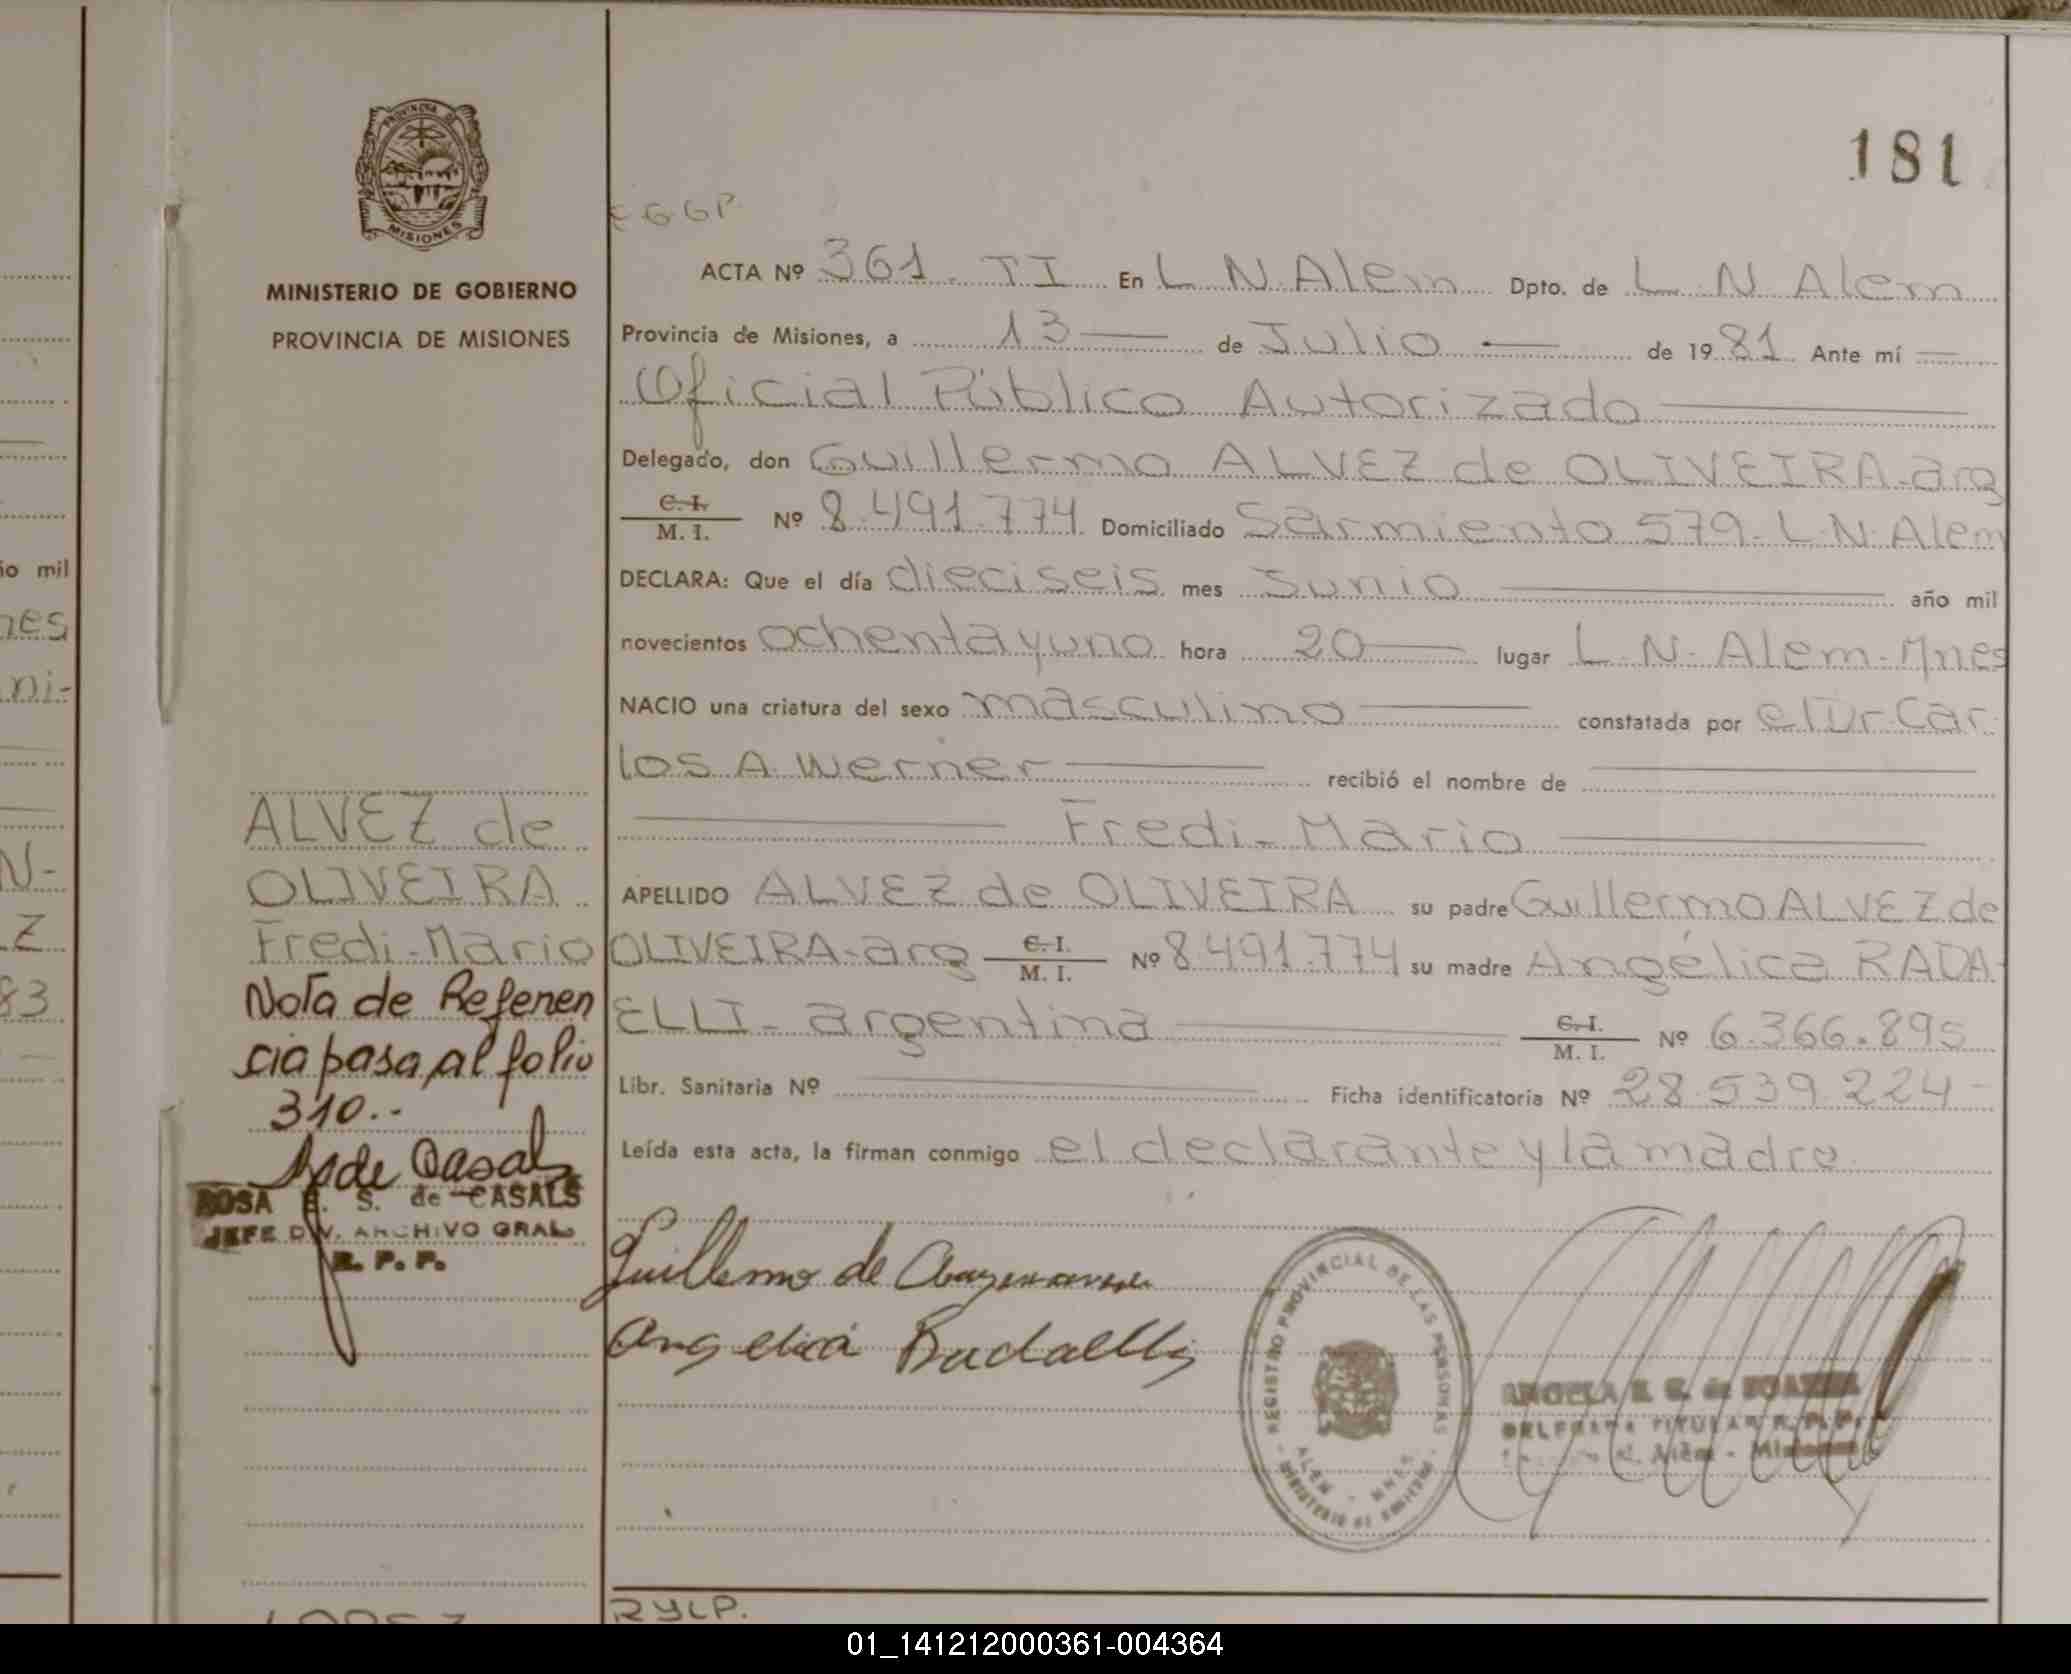 181
PROVINCIA DE
MISIONES
MINISTERIO DE GOBIERNO
PROVINCIA DE MISIONES
GGP
ACTA Nº 361. TI En L. N. Alem Dpto. de L. N. Alem
Provincia de Misiones, a 13 de Julio de 1981 Ante mí
Oficial Público Autorizado
Delegado, don Guillermo ALVEZ de OLIVEIRA-arg
C. I. / M. I. Nº 8.491.774 Domiciliado Sarmiento 579. L.N. Alem
DECLARA: Que el día dieciseis mes Junio año mil
novecientos ochenta y uno hora 20 lugar L. N. Alem. Mnes
NACIO una criatura del sexo masculino constatada por el Dr. Car
los A. Werner recibió el nombre de
Fredi-Mario
APELLIDO ALVEZ de OLIVEIRA su padre Guillermo ALVEZ de
OLIVEIRA-arg C. I. / M. I. Nº 8.491.774 su madre Angélica RADA-
ELLI- argentina C. I. / M. I. Nº 6.366.895
Libr. Sanitaria Nº Ficha identificatoria Nº 28.539.224-
Leída esta acta, la firman conmigo el declarante y la madre
ALVEZ de
OLIVEIRA
Fredi-Mario
Nota de Referen
cia pasa al folio
310.-
de Casals
ROSA E. S. de CASALS
JEFE DIV. ARCHIVO GRAL
R. P. P.
Guillermo de
Angelica Radaelli
REGISTRO PROVINCIAL DE LAS PERSONAS
ALEM - MNES
MINISTERIO DE GOBIERNO
ANGELA E. G. de
DELEGADA TITULAR R. P. P.
N. Alem - Misiones
io mil
nes
ni-
N-
Z
83
LOPEZ
RYLP.
01_141212000361-004364